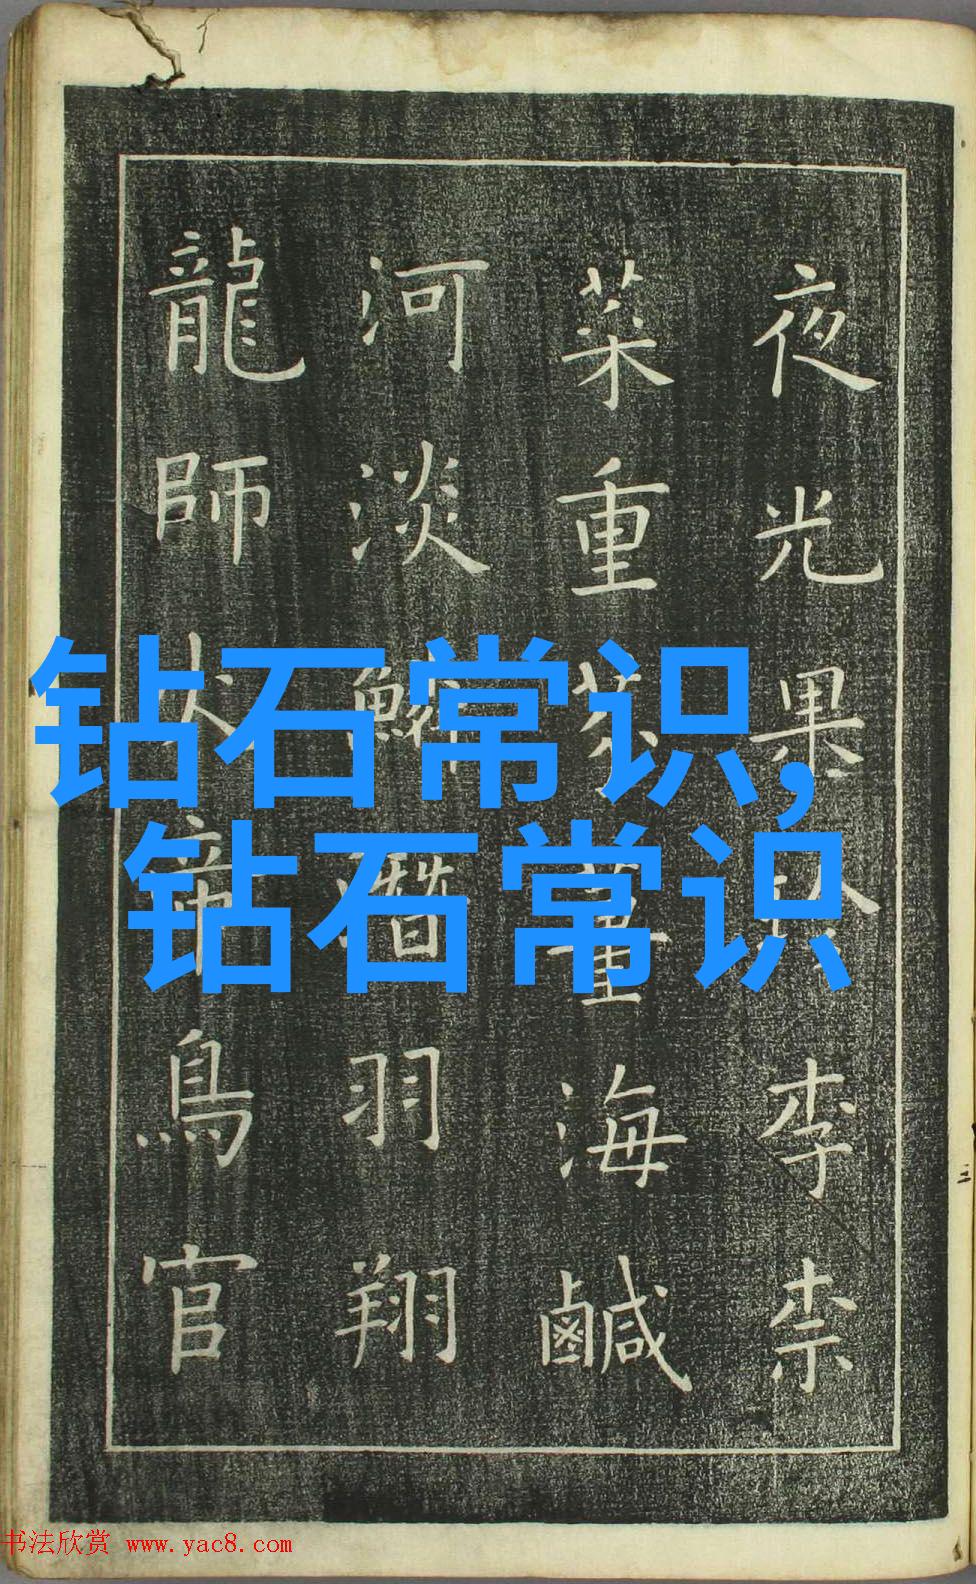 夜光果珍李柰
菜重芥薑海鹹
河淡鱗潛羽翔
龍師火帝鳥官
钻石常识,
钻石常识
书法欣赏 www.yac8.com